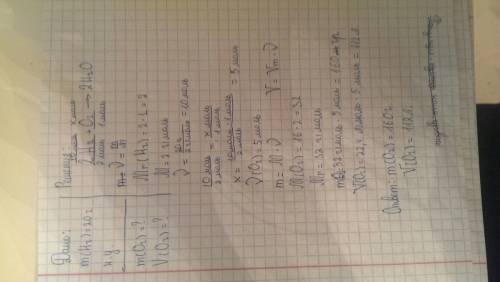 Дано:
m(H₂)=20г
н.у.
m(O₂)=?
V(O₂)=?
Решение:
10 моль x моль
2H₂ + O₂ → 2H₂O
2 моль 1 моль
ν = m/M
Mr(H₂)=2·1=2
M=2 г/моль
ν = 20г / 2г/моль = 10 моль
10 моль / 2 моль = x моль / 1 моль
x = 10 моль · 1 моль / 2 моль = 5 моль
ν(O₂)=5 моль
m = M·ν V=Vm·ν
Mr(O₂)=16·2=32
M=32 г/моль
m(O₂)=32 г/моль · 5 моль = 160 гр
V(O₂)=22,4 л/моль · 5 моль = 112 л
Ответ: m(O₂)=160г
V(O₂)=112л